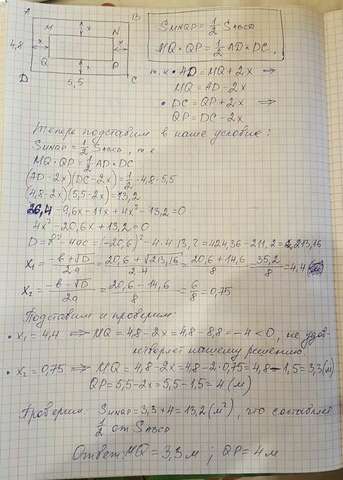 A B
M N
4,8 x x x
Q P
x
D 5,5 C
S MNQP = 1/2 S ABCD
MQ · QP = 1/2 AD · DC,
т.к. • AD = MQ + 2x ⇒
MQ = AD - 2x
• DC = QP + 2x ⇒
QP = DC - 2x
Теперь подставим в наше условие:
S MNQP = 1/2 S ABCD, т.е.
MQ · QP = 1/2 AD · DC
(AD - 2x)(DC - 2x) = 1/2 · 4,8 · 5,5
(4,8 - 2x)(5,5 - 2x) = 13,2
26,4 - 9,6x - 11x + 4x² - 13,2 = 0
4x² - 20,6x + 13,2 = 0
D = b² - 4ac = (-20,6)² - 4·4·13,2 = 424,36 - 211,2 = 213,16
x₁ = (-b + √D)/2a = (20,6 + √213,16)/2·4 = (20,6 + 14,6)/8 = 35,2/8 = 4,4 (м)
x₂ = (-b - √D)/2a = (20,6 - 14,6)/8 = 6/8 = 0,75
Подставим и проверим:
• x₁ = 4,4 ⇒ MQ = 4,8 - 2x = 4,8 - 8,8 = -4 < 0, не удов-
летворяет нашему решению
• x₂ = 0,75 ⇒ MQ = 4,8 - 2x = 4,8 - 2·0,75 = 4,8 - 1,5 = 3,3 (м)
QP = 5,5 - 2x = 5,5 - 1,5 = 4 (м)
Проверим S MNQP = 3,3 · 4 = 13,2 (м²), что составляет
1/2 от S ABCD
Ответ MQ = 3,3 м ; QP = 4 м